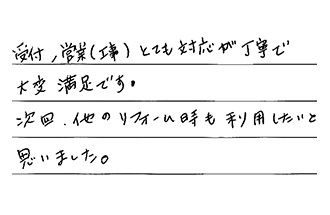 受付、営業(工事)とても対応が丁寧で
大変満足です。
次回、他のリフォーム時も利用したいと
思いました。